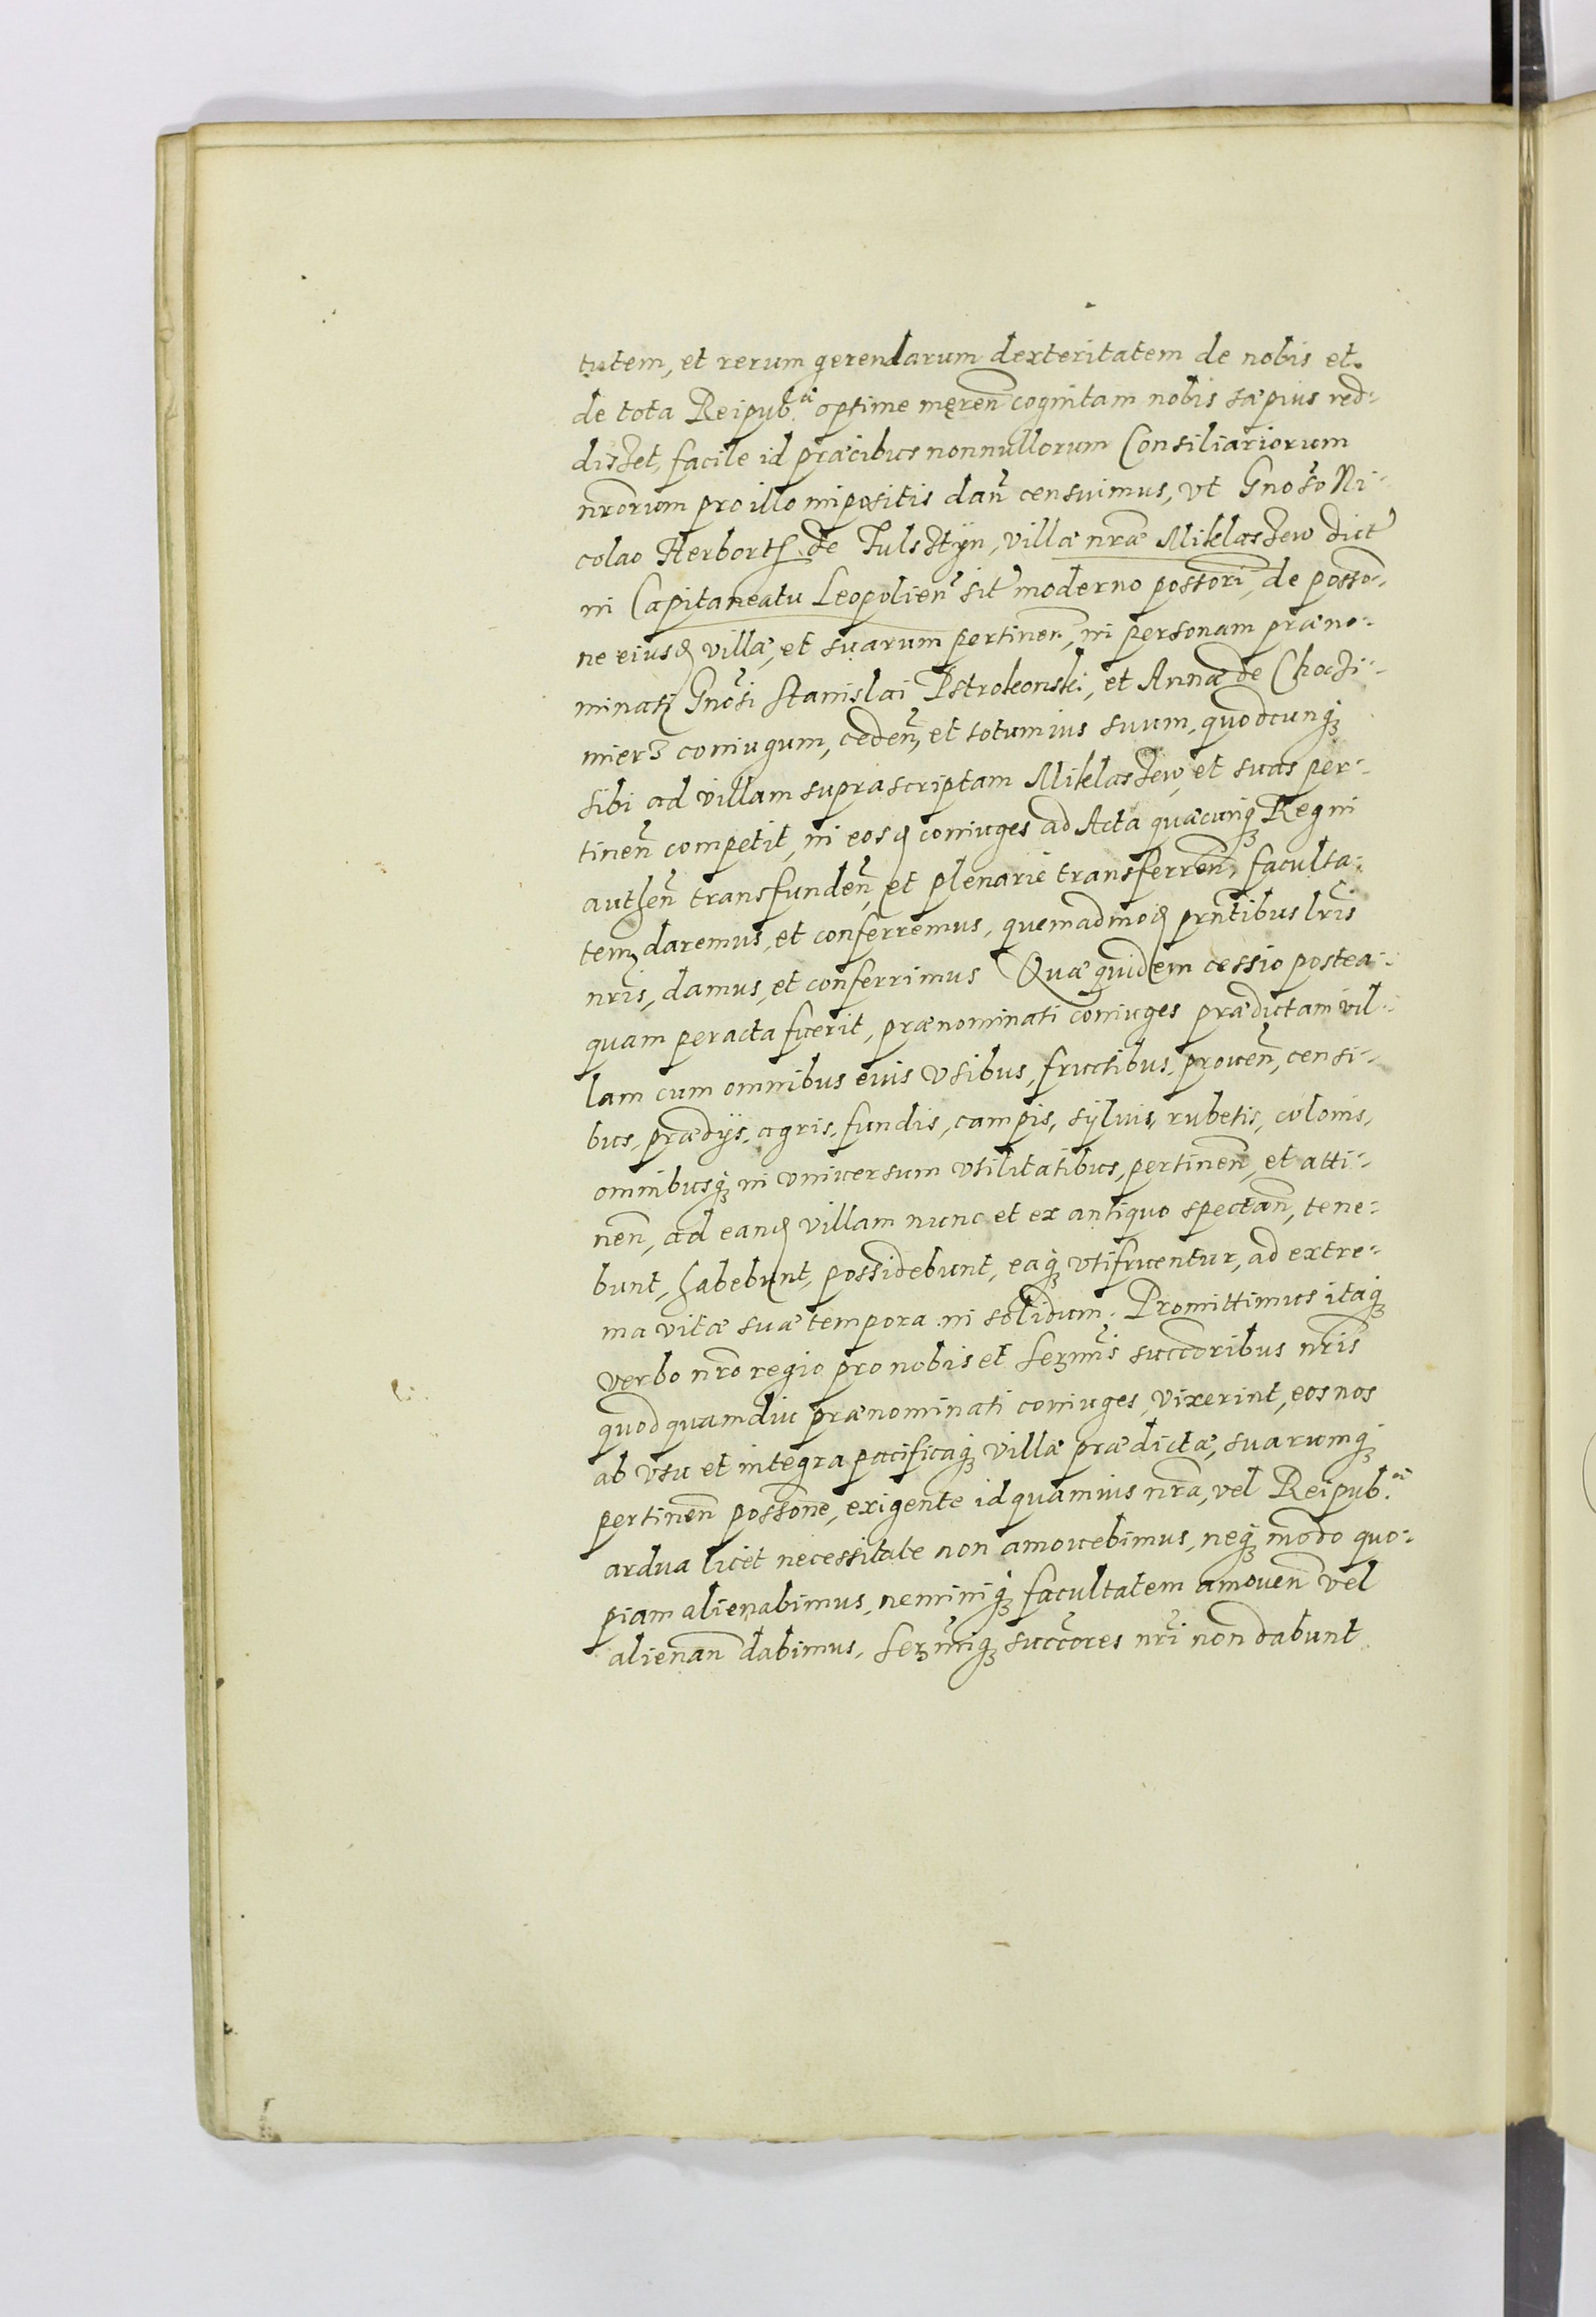 tutem, et rerum gerendarum dexteritatem de nobis et
de tota Reipub.ca optime meren̄ cognitam nobis sæpius red-
disset, facile id præcibus nonnullorum Consiliariorum
nr̄orum pro illo impositis dan̄ censuimus, vt Gnōso Ni-
colao Herborth de Fulsztyn, villæ nr̄æ Miklaszew dict
in Capitaneatu Leopolien̄ sit moderno possori, de posso-
ne eiusd villæ, et suarum pertinen̄, in personam præno-
minati Gnōsi Stanislai Pstrokonski, et Annæ de Chozi-
mierz coniugum, ceden̄, et totum ius suum, quodcunq3
sibi ad villam suprascriptam Miklaszew, et suas per-
tinen̄ competit, in eosd coniuges ad Acta quæcunq3 Regni
authen̄ transfunden̄, et plenarie transferren̄, faculta-
tem daremus, et conferremus, quemadmod prn̄tibus lr̄is
nr̄is, damus, et conferrimus Quæ quidem cessio postea-
quam peracta fuerit, prænominati coniuges prædictam vil-
lam cum omnibus eius vsibus, fructibus, prouen̄, censi-
bus, prædijs, agris, fundis, campis, syluis, rubetis, colonis,
omnibusq3 in vniuersum vtilitatibus, pertinen̄, et atti-
nen̄, ad eand villam nunc et ex antiquo spectan̄, tene-
bunt, habebunt, possidebunt, eaq3 vtifruentur, ad extre-
ma vitæ suæ tempora in solidum. Promittimus itaq3
verbo nr̄o regio pro nobis et Serm̄is succoribus nr̄is
quod quamdiu prænominati coniuges, vixerint, eos nos
ab vsu et integra pacificaq3 villæ prædictæ, suarumq3
pertinen̄ possone, exigente id quamuis nr̄a, vel Reipub.cæ
ardua licet necessitate non amouebimus, neq3 modo quo-
piam alienabimus, neminiq3 facultatem amouen̄ vel
alienan̄ dabimus, Serm̄iq3 succores nr̄i non dabunt